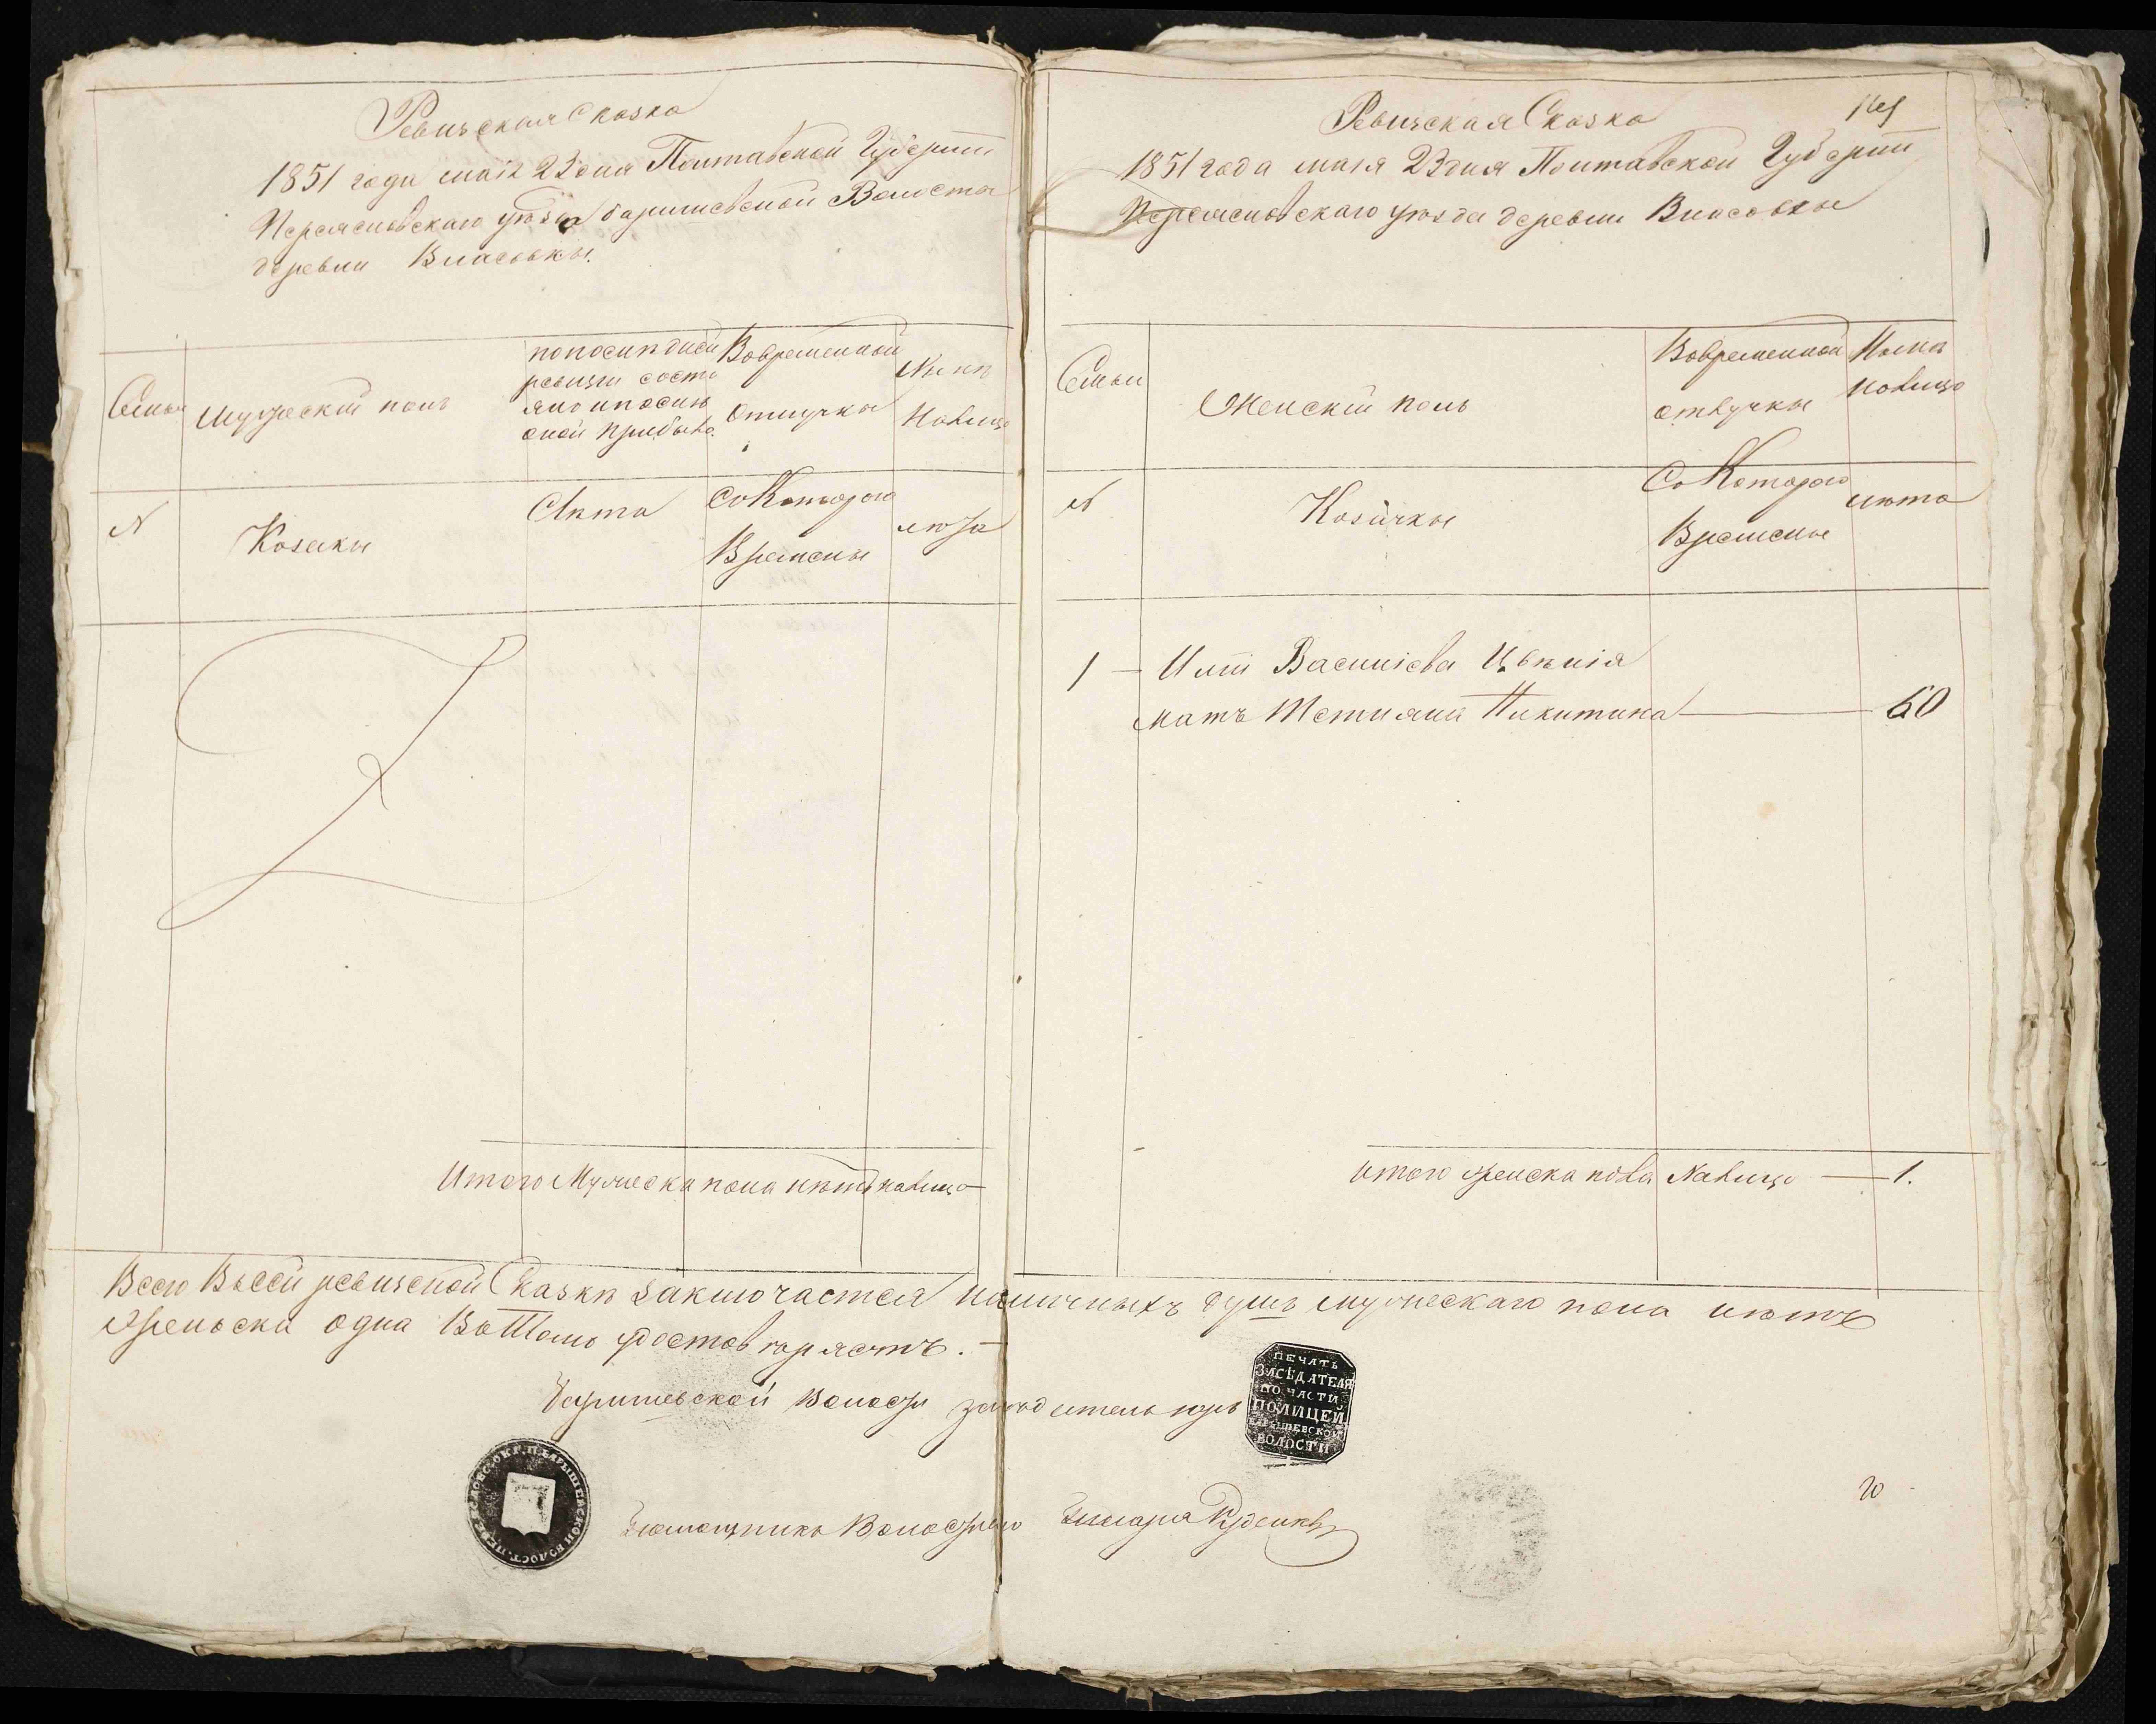 Ревизская Сказка
1851 года мая 23 дня Полтавской Губернии
Переяславскаго уѣзда баришевской Волости
деревни Власовки.
Семьи
Мужескій полъ
по последней
ревизіи состо
яло и после
оной прибыло
Вовременной
Отлучкѣ
Нынѣ
Налицо
№
Козаки
Лѣта
Съ Котораго
Времены
лѣта
Итого Мужеска пола нѣтъ налицо
Ревизская Сказка
1851 года мая 23 дня Полтавской Губерніи
Переяславскаго уѣзда деревни Власовки
Семьи
Женскій полъ
Вовременной
отлучкы
Нынѣ
налицо
№
Козачкы
Со Котораго
Времены
лѣта
1 — Василіева
мать Тетияна Никитина — 60
итого женска пола Налицо — 1.
Всего Въсей ревизской Сказкѣ заключается наличныхъ душъ мужескаго пола нѣтъ
женьска одна
баришевской волости
ПЕЧАТЬ
ЗАСѢДАТЕЛЯ
ПО ЧАСТИ
ПОЛИЦЕЙ
БАРЫШЕВСКОЙ
ВОЛОСТИ
Волостнаго Писаря
20